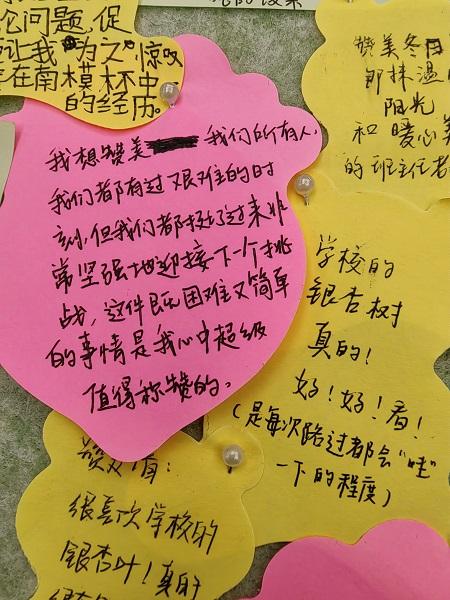 论问题,促
让我"为之"惊叹
在南模杯中
的经历。
我想赞美 我们所有人,
我们都有过艰难的时
刻,但我们都挺了过来非
常坚强地迎接下一个挑
战,这件既困难又简单
的事情是我心中超级
值得称赞的。
赞美冬日
那抹温
阳光
和暖心美
的班主任老
学校的
银杏树
真的!
好!好!看!
(是每次路过都会"哇"
一下的程度)
很喜欢学校的
银杏叶!真的